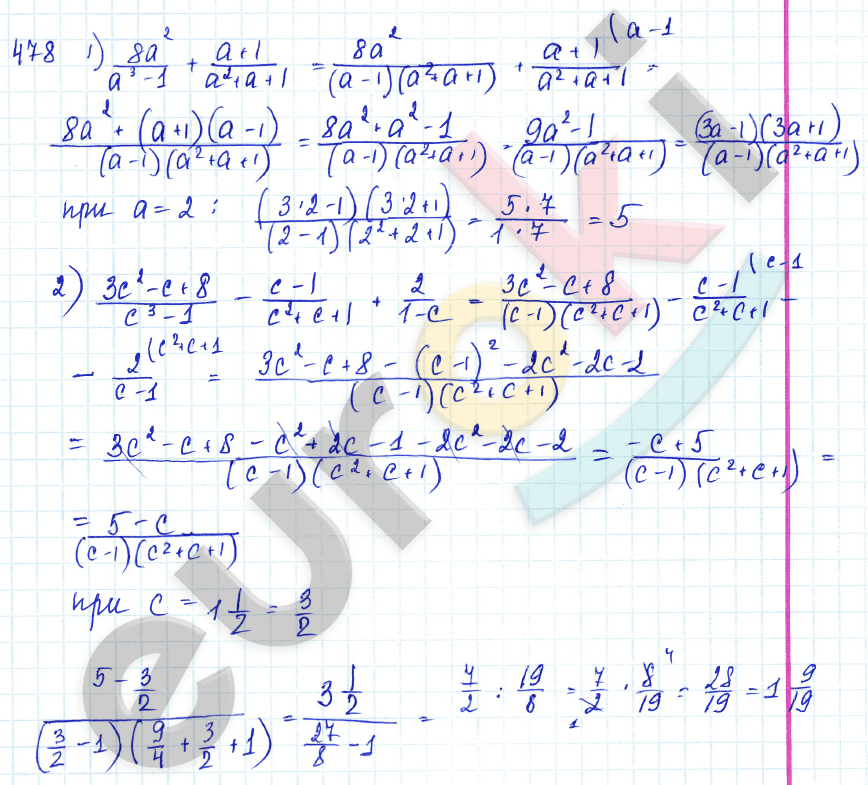 478 1) 8a²/(a³-1) + (a+1)/(a²+a+1) = 8a²/((a-1)(a²+a+1)) + (a+1)/(a²+a+1) (a-1 =
(8a²+(a+1)(a-1))/((a-1)(a²+a+1)) = (8a²+a²-1)/((a-1)(a²+a+1)) = (9a²-1)/((a-1)(a²+a+1)) = ((3a-1)(3a+1))/((a-1)(a²+a+1))
при a=2 : ((3·2-1)(3·2+1))/((2-1)(2²+2+1)) = (5·7)/(1·7) = 5
2) (3c²-c+8)/(c³-1) - (c-1)/(c²+c+1) + 2/(1-c) = (3c²-c+8)/((c-1)(c²+c+1)) - (c-1)/(c²+c+1) (c-1 -
- 2/(c-1) (c²+c+1 = (3c²-c+8-(c-1)²-2c²-2c-2)/((c-1)(c²+c+1))
= (3c²-c+8-c²+2c-1-2c²-2c-2)/((c-1)(c²+c+1)) = (-c+5)/((c-1)(c²+c+1)) =
= (5-c)/((c-1)(c²+c+1))
при c = 1 1/2 = 3/2
(5-3/2)/((3/2-1)(9/4+3/2+1)) = (3 1/2)/(27/8-1) = 7/2 : 19/8 = 7/2 1 · 8/19 4 = 28/19 = 1 9/19
euroki